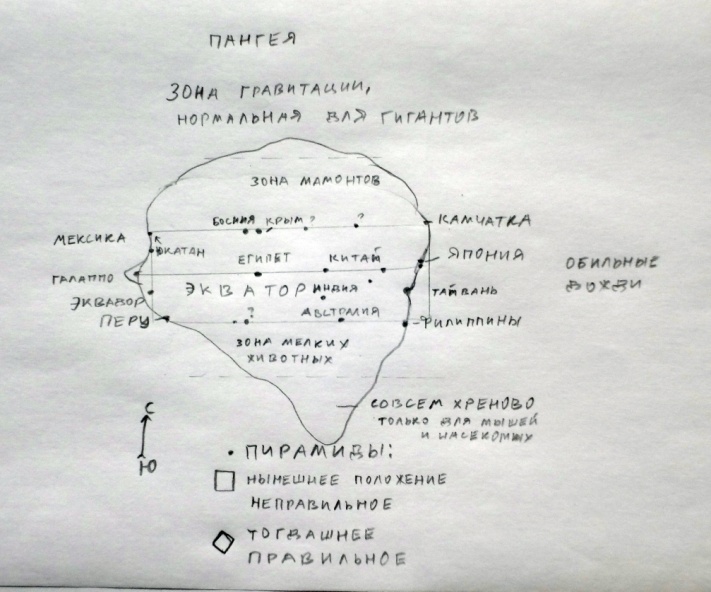 ПАНГЕЯ
ЗОНА ГРАВИТАЦИИ,
НОРМАЛЬНАЯ ДЛЯ ГИГАНТОВ
ЗОНА МАМОНТОВ
БОСНИЯ КРЫМ ? ?
КАМЧАТКА
МЕКСИКА
ЮКАТАН
ЕГИПЕТ КИТАЙ
ЯПОНИЯ
ОБИЛЬНЫЕ
ДОЖДИ
ГАЛАППО
ЭКВАТОР ИНДИЯ
ТАЙВАНЬ
ЭКВАДОР
ПЕРУ
? АВСТРАЛИЯ
ФИЛИППИНЫ
ЗОНА МЕЛКИХ
ЖИВОТНЫХ
СОВСЕМ ХРЕНОВО
ТОЛЬКО ДЛЯ МЫШЕЙ
И НАСЕКОМЫХ
С
Ю
• ПИРАМИДЫ:
НЫНЕШНЕЕ ПОЛОЖЕНИЕ
НЕПРАВИЛЬНОЕ
ТОГДАШНЕЕ
ПРАВИЛЬНОЕ